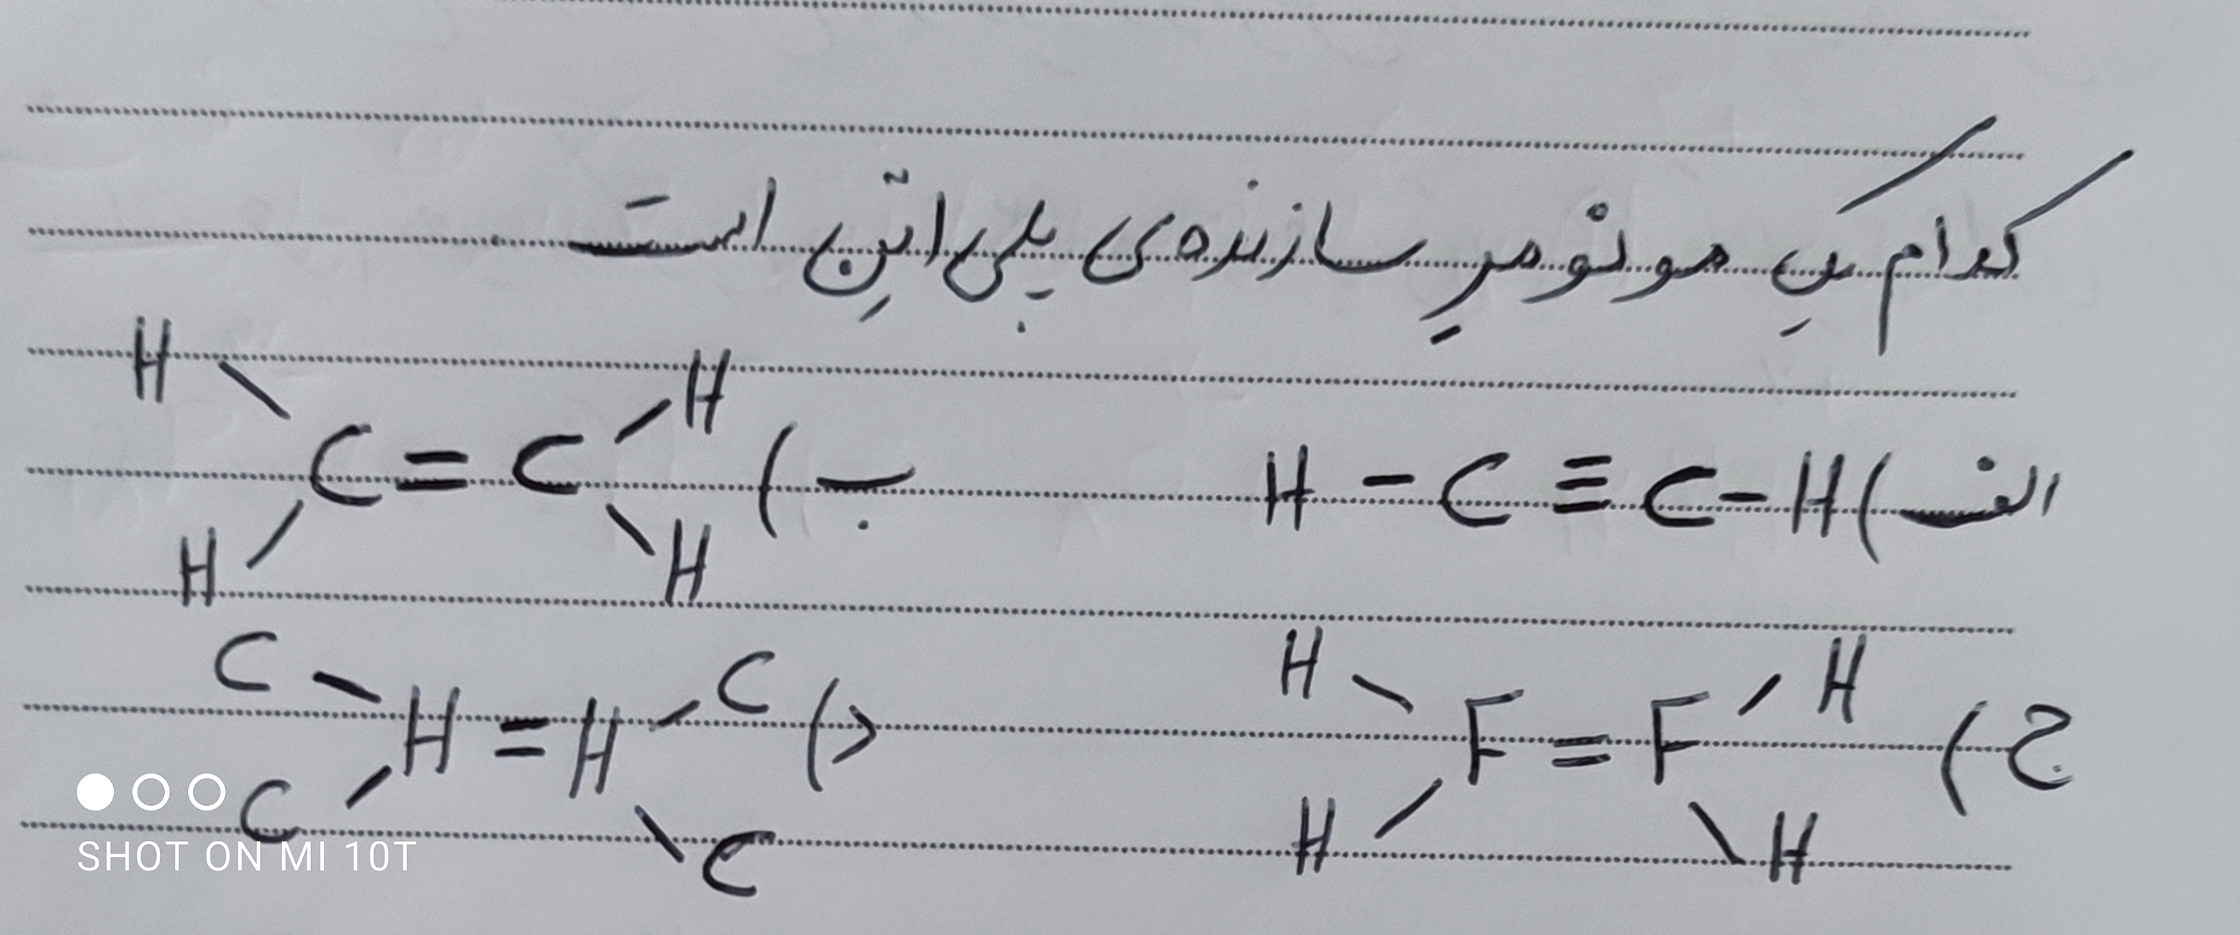 کدام یک مونومر سازنده‌ی پلی اتن است
الف) H - C ≡ C - H
ب) H H C = C H H
ج) H H F = F H H
د) C C H = H C C
SHOT ON MI 10T